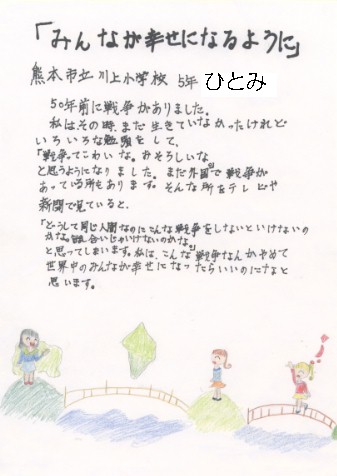 「みんなが幸せになるように」
熊本市立川上小学校 5年 ひとみ
50年前に戦争がありました。
私はその時、まだ生きていなかったけれど
いろいろな勉強をして、
「戦争ってこわいな。おそろしいな」
と思うようになりました。まだ外国で戦争が
あっている所もあります。そんな所をテレビや
新聞で見ていると、
「どうして同じ人間なのにこんな戦争をしないといけないの
かな。話し合いじゃいけないのかな。」
と思ってしまいます。私は、こんな戦争なんかやめて
世界中のみんなが幸せになったらいいのになと
思います。